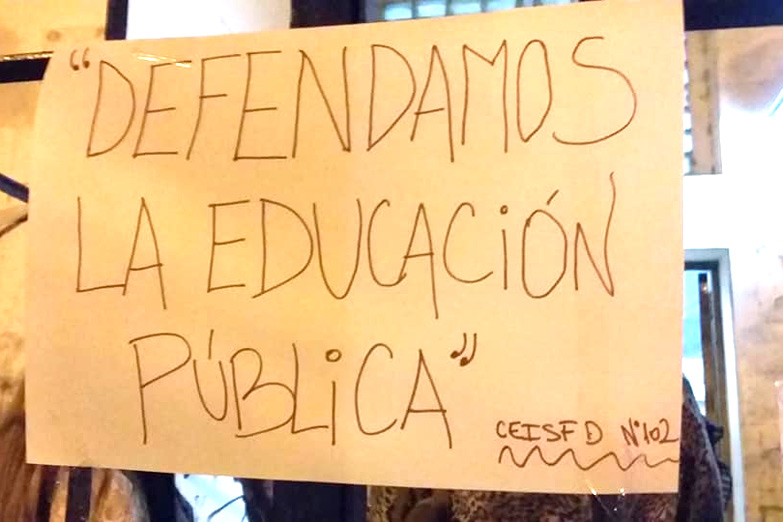 “DEFENDAMOS
LA EDUCACIÓN
PÚBLICA”
CEISFD N°102